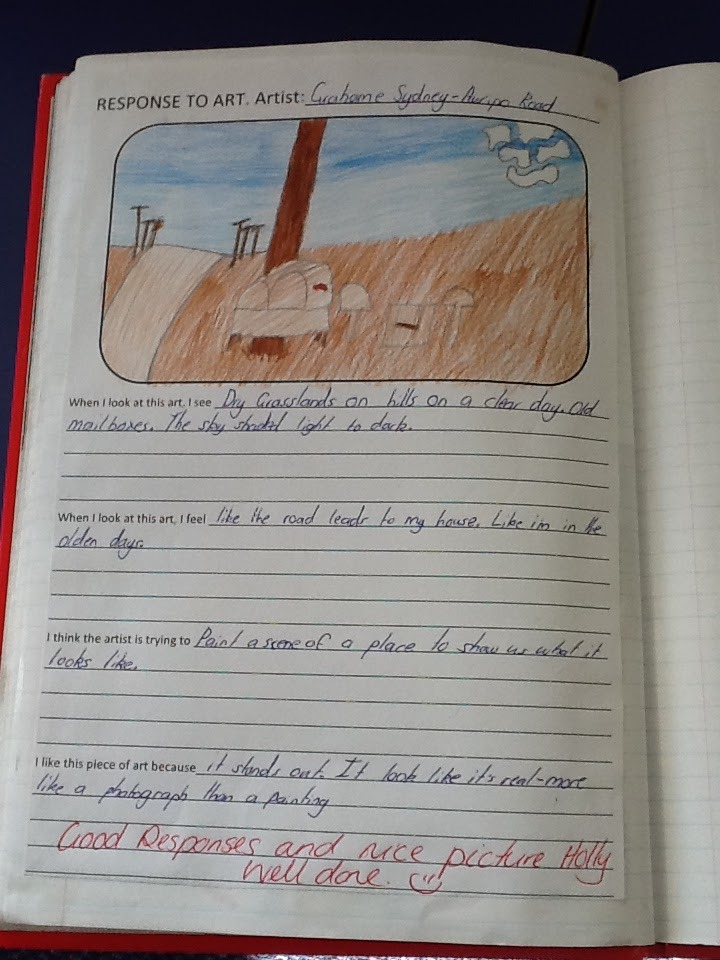 RESPONSE TO ART. Artist: Grahame Sydney - Auripo Road
When I look at this art, I see Dry Grasslands on hills on a clear day. Old
mailboxes. The sky shaded light to dark.
When I look at this art, I feel like the road leads to my house. Like im in the
olden days.
I think the artist is trying to Paint a scene of a place to show us what it
looks like.
I like this piece of art because it stands out. It look like it's real-more
like a photograph than a painting
Good Responses and nice picture Holly
Well done.